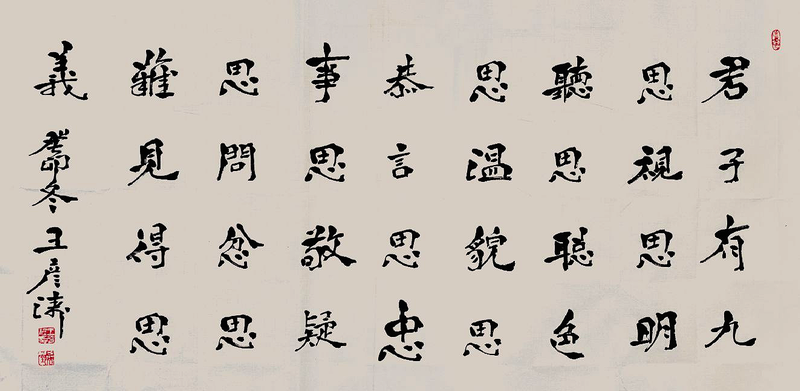 君子有九
思視思明
聽思聰色
思溫貌思
恭言思忠
事思敬疑
思問忿思
難見得思
義
癸卯冬王彦涛